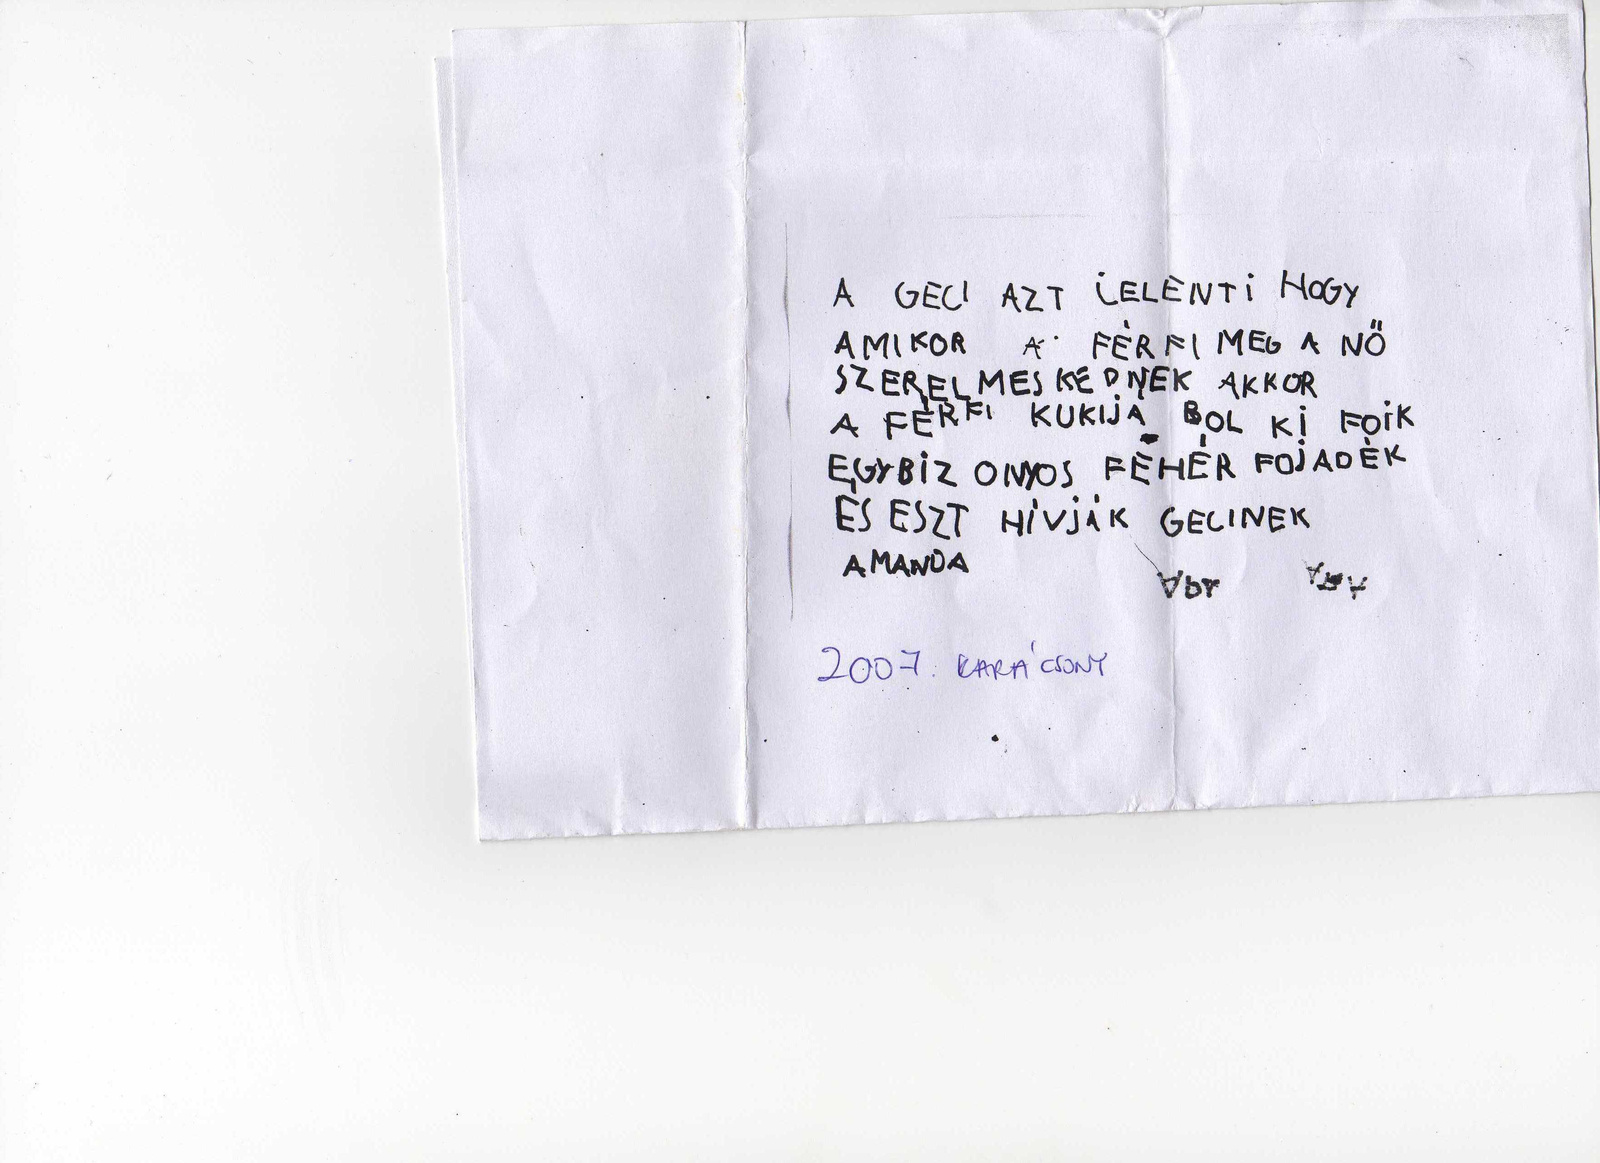 A GECI AZT IELENTI HOGY
AMIKOR A FÉRFI MEG A NŐ
SZERELMESKEDNEK AKKOR
A FÉRFI KUKIJA BOL KI FOIK
EGYBIZ ONYOS FÉHÉR FOJADÉK
ÉS ESZT HÍVJÁK GECINEK
AMANDA
2007. KARÁCSONY